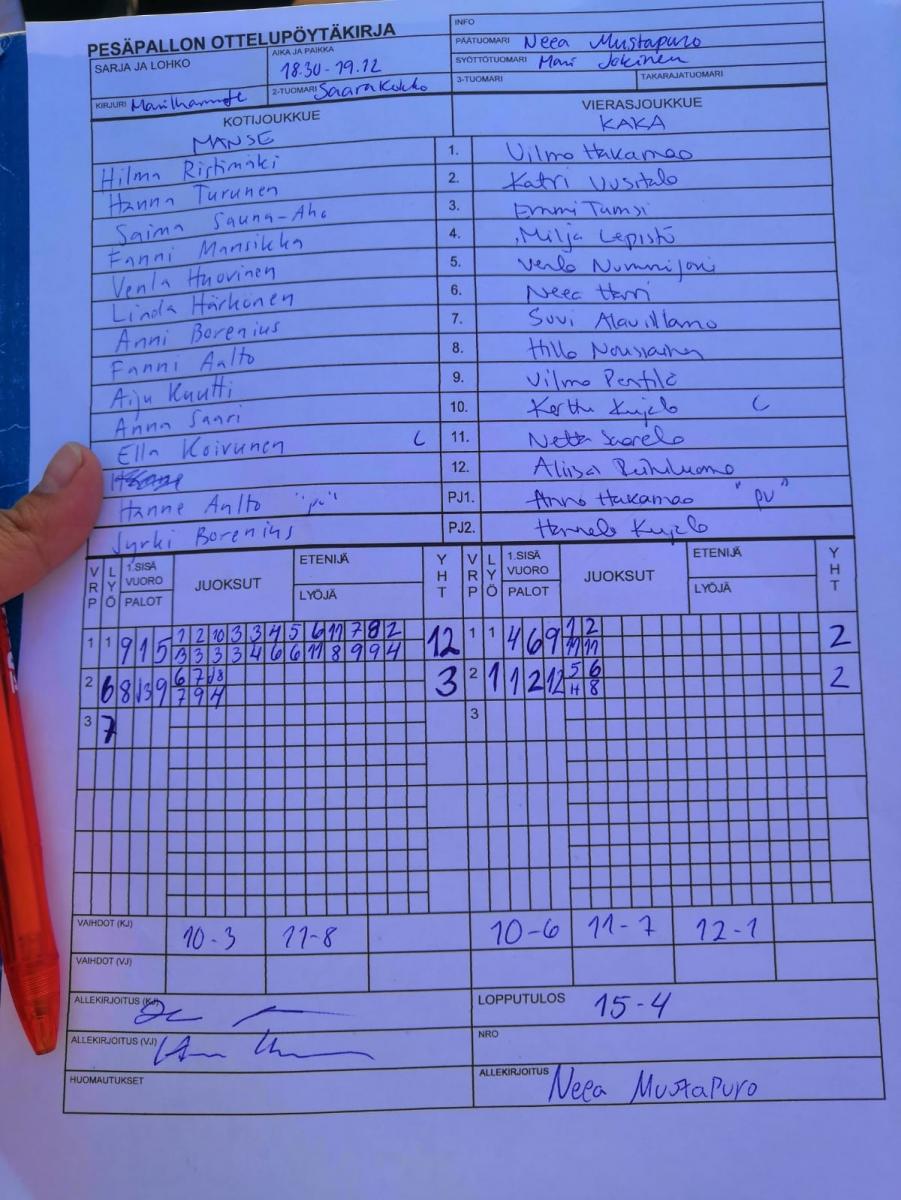 PESÄPALLON OTTELUPÖYTÄKIRJA
INFO
SARJA JA LOHKO
AIKA JA PAIKKA
18.30-19.12
PÄÄTUOMARI Neea Mustapuro
SYÖTTÖTUOMARI Mari Jokinen
KIRJURI
2-TUOMARI Saara Kokko
3-TUOMARI
TAKARAJATUOMARI
KOTIJOUKKUE
MANSE
VIERASJOUKKUE
KAKA
Hilma Ristimäki 1. Vilma Hakamaa
Hanna Turunen 2. Katri Uusitalo
Saima Sauna-Aho 3. Emmi Tamsi
Fanni Mansikka 4. Milja Lepistö
Venla Huovinen 5. Venla Nummijoki
Linda Härkönen 6. Neea Harri
Anni Borenius 7. Suvi Alavillamo
Fanni Aalto 8. Hilla Nousiainen
Aiju Kuutti 9. Vilma Penttilä
Anna Saari 10. Kerttu Kujala C
Ella Koivunen C 11. Netta Saarela
12. Aliisa
Hanne Aalto "pj" PJ1. Anna Hakamaa "pv"
Jyrki Borenius PJ2. Hannele Kujala
VRP LYÖ 1.SISÄ VUORO PALOT JUOKSUT ETENIJÄ LYÖJÄ YHT VRP LYÖ 1.SISÄ VUORO PALOT JUOKSUT ETENIJÄ LYÖJÄ YHT
1 1 9 1 5 1 2 10 3 3 4 5 6 11 7 8 2 12 1 1 4 6 9 1 2 2
3 3 3 3 4 6 6 11 8 9 9 4 11 11
2 6 8 9 6 7 3 2 1 1 2 12 5 6 2
7 9 4 8
3 7 3
VAIHDOT (KJ) 10-3 11-8 10-6 11-7 12-1
VAIHDOT (VJ)
ALLEKIRJOITUS (KJ)
LOPPUTULOS 15-4
ALLEKIRJOITUS (VJ)
NRO
HUOMAUTUKSET
ALLEKIRJOITUS Neea Mustapuro